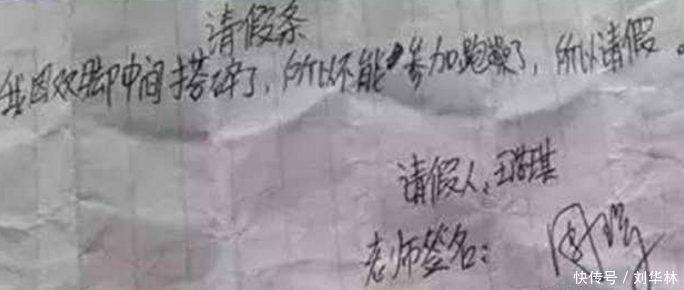 请假条
我因双脚中间搭碎了，所以不能参加跑操了，所以请假。
请假人：王
老师签名：
快传号/刘华林